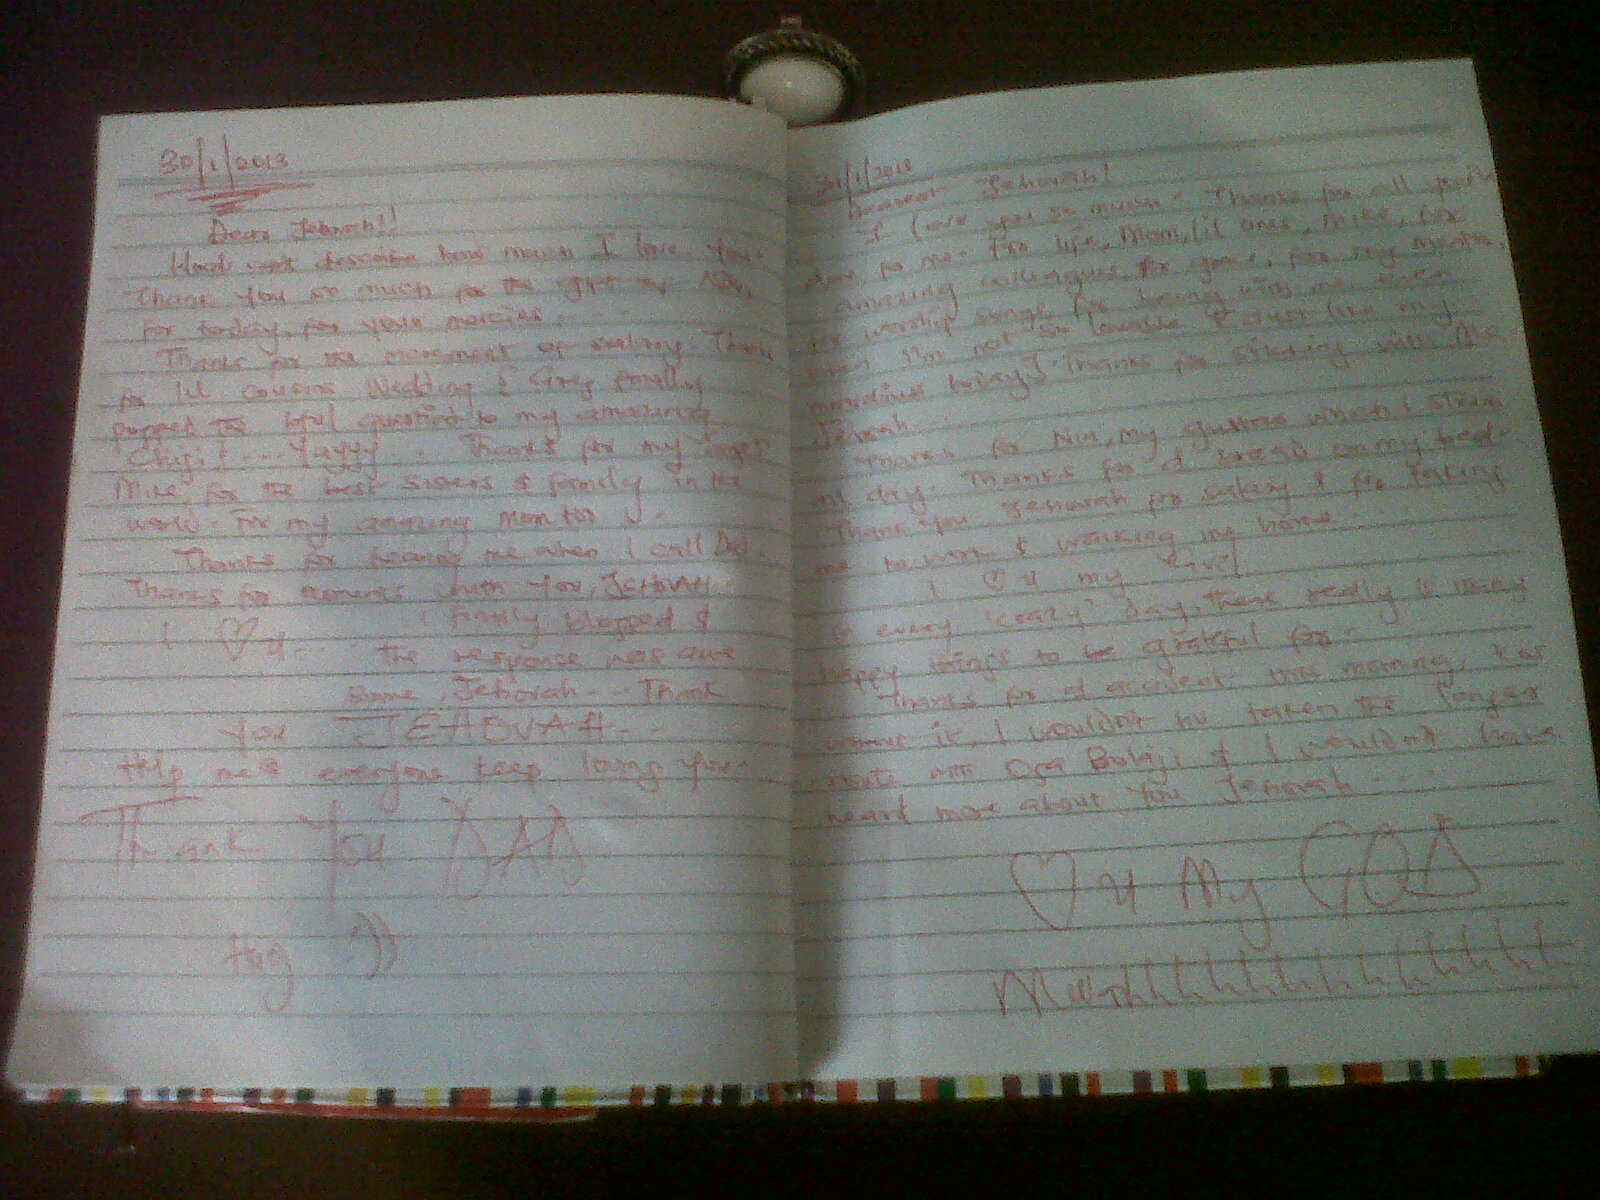 30/1/2013
Dear Jehovah!!
Words can't describe how much I love You.
Thank You so much for the gift of
for today, for Your mercies....
Thanks for the movement of salary. Thanks
for lil cousins Wedding & Greg finally
popped the question to my amazing
Yayyy... Thanks for my
Mike, for the best sisters & family in the
world. For my amazing mentor
Thanks for hearing me when I call Dad.
Thanks for moments with You, JEHOVAH
I ♡ u... I finally blogged &
the response was awe
some, Jehovah... Thank
You JEHOVAH...
Help me & everyone keep loving You.
Thank You DAD
Hug :-))
31/1/2013
Dearest Jehovah!
I love You so much. Thanks for all You've
done for me. For life, Mom, lil ones, Mike, for
amazing colleagues, for grace, for my mentor,
for worship songs, for being with me even
when I'm not so loveable & just like my
today]. Thanks for sticking with me
Jehovah...
Thanks for my which I
all day. Thanks for d bread on my head.
Thank You Jehovah for salary & for taking
me to work & walking me home.
I ♡ u my
In every 'crazy' day, there really is many
happy things to be grateful for.
Thanks for d accident this morning, Cos
without it, I wouldn't hv taken the longer
route with Oga Bolaji & I wouldn't have
heard more about You Jehovah....
♡ u My GOD
Muahhhhhhhhhhhh